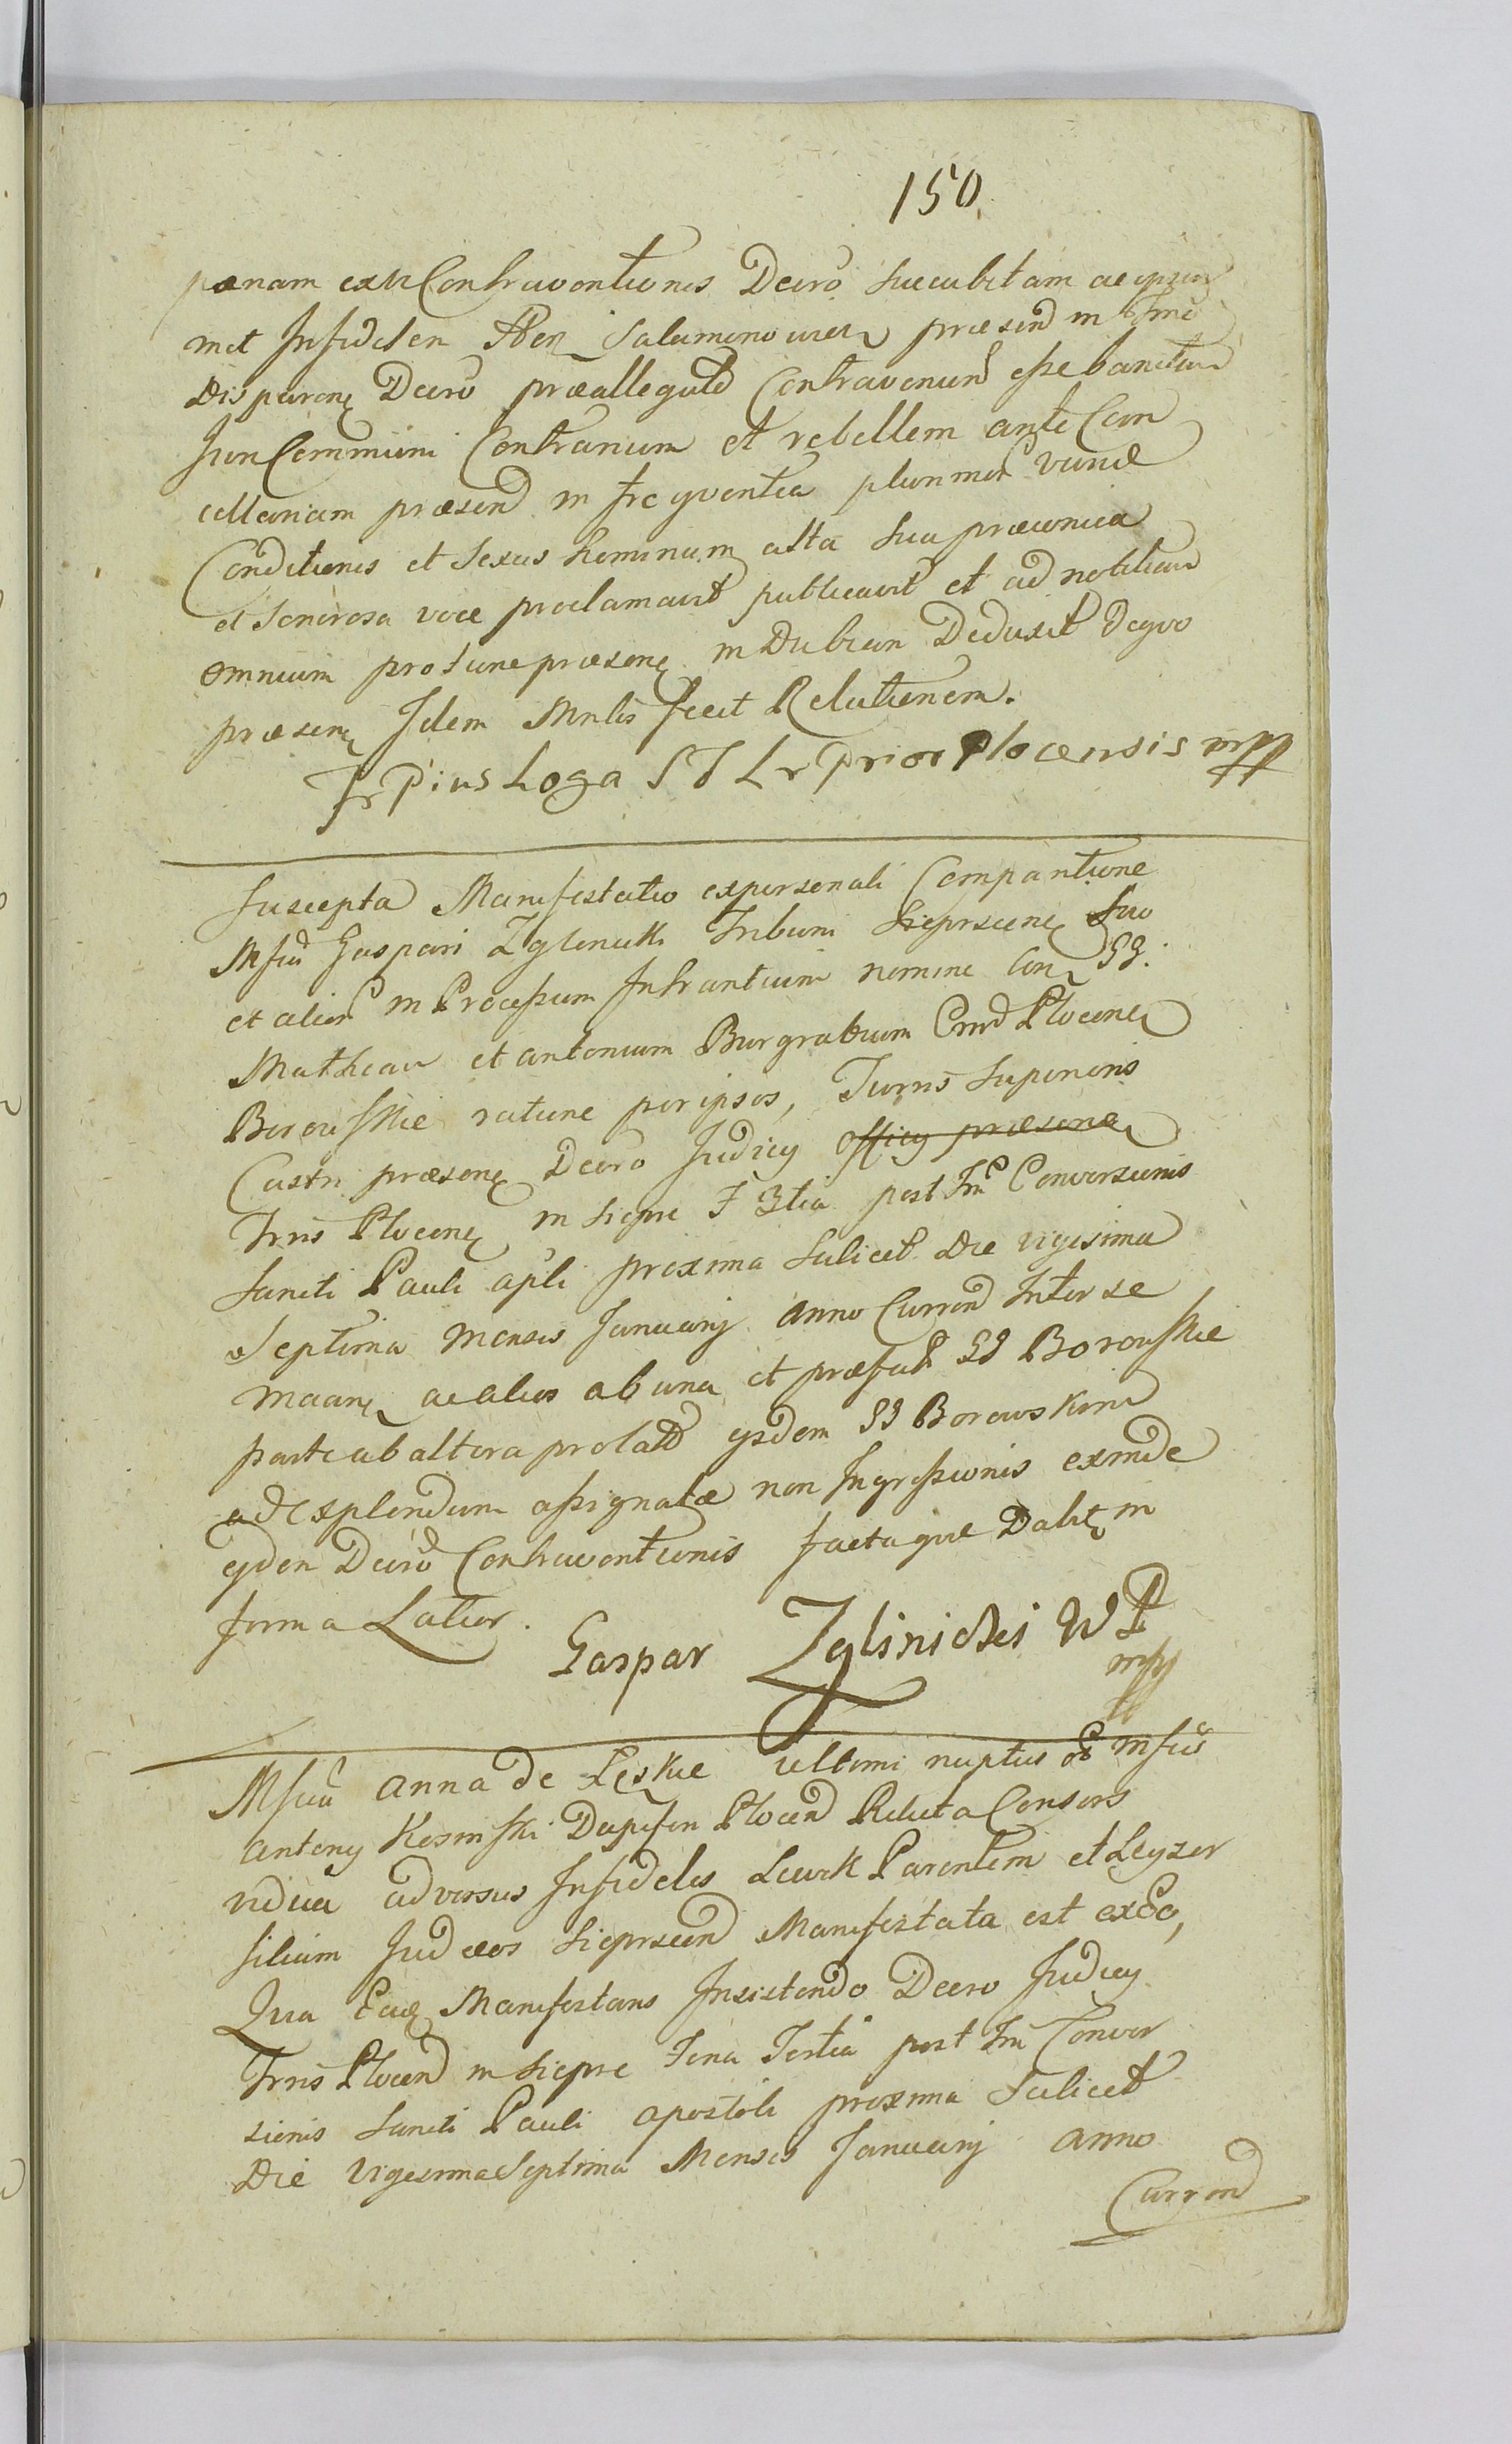 150.
pœnam extr Contraventionis Decro succubitam ac ipsum
met Infidelem Ben Salamonowicz præsend in Tmno
disparen Decro præallegato Contravenien esse banitum
Juri Communi Contrarium et rebellem ante Can
cellariam præsend in frequentia plurimor variæ
Conditionis et sexus hominum alta sua præconica
et sonorosa voce proclamavit publicavit et ad notitiam
omnium pro tunc præsen in dubiam Deduxit Deqvo
præsen Idem Mnlis fecit Relationem.
Fr Pius Loga STLr Prior Plocensis mpp
Suscepta Manifestatio ex personali Comparitione
Mfici Gaspari Zglenicki Tribuni Sieprscien suo
et alior in Processum Intrantium nomine Con GG:
Matheum et antonium Burgrabium Cmd Plocen
Borowskie ratione per ipsos, Turris superioris
Castri præsen Decro Judicy officy præsen
Trris Plocen in Siepre F 3tia post Fm Conversionis
Sancti Pauli apli proxima Scilicet Die vigesima
Septima Mensis January anno Currend Inter se
Maan ac alios ab una et præfat GG Borowskie
parte ab altera prolato ysdem GG Borowskim
ad Explendum assignatæ non Ingressionis exinde
eydem Decro Contraventionis factaque Dabit in
forma Latior.
Gaspar Zglinicki W P
mpp
Mfica anna de Leskie ultimi nuptus olim Mfici
Antony Kosinski Dapiferi Plocen Relicta Consors
vidua adversus Infideles Lewek Parentem et Leyzer
filium Judæos Sieprscen Manifestata est ex Eo,
Qvia Eadem Manifestans Insistendo Decro Judicy
Trris Plocen in Siepre Feria Tertia post Fm Conver
sionis Sancti Pauli apostoli proxima Scilicet
Die vigesima Septima Mensis January anno
Currend